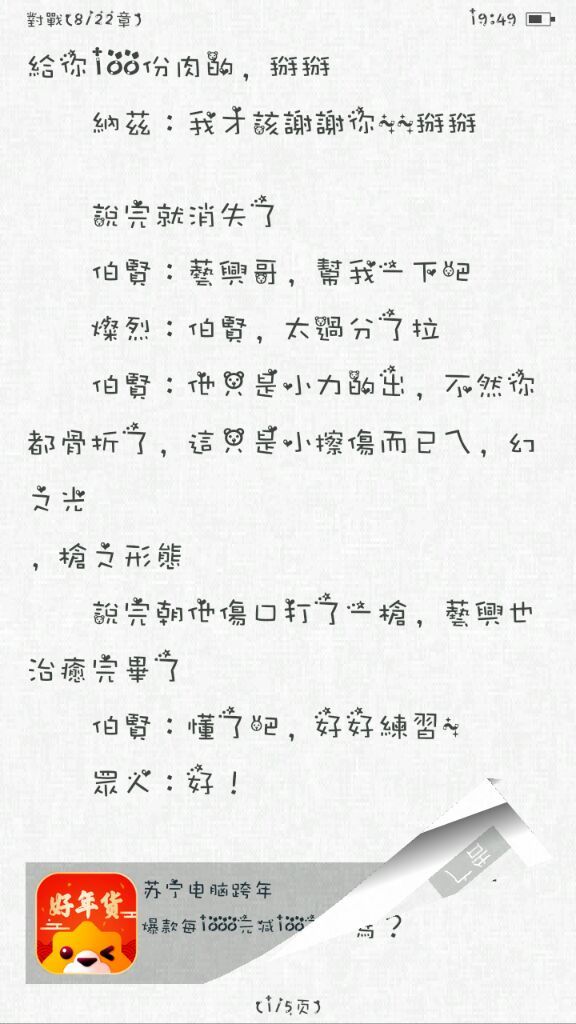 對戰(8/22章)
19:49
給你100份肉的，掰掰
納茲：我才該謝謝你~~掰掰
說完就消失了
伯賢：藝興哥，幫我一下吧
燦烈：伯賢，太過分了拉
伯賢：他只是小力的出，不然你
都骨折了，這只是小擦傷而已ㄟ，幻
之光
，槍之形態
說完朝他傷口打了一槍，藝興也
治癒完畢了
伯賢：懂了吧，好好練習~
眾人：好！
广告
好年货
苏宁电脑跨年
爆款每1000元减100
嗎？
(1/5页)